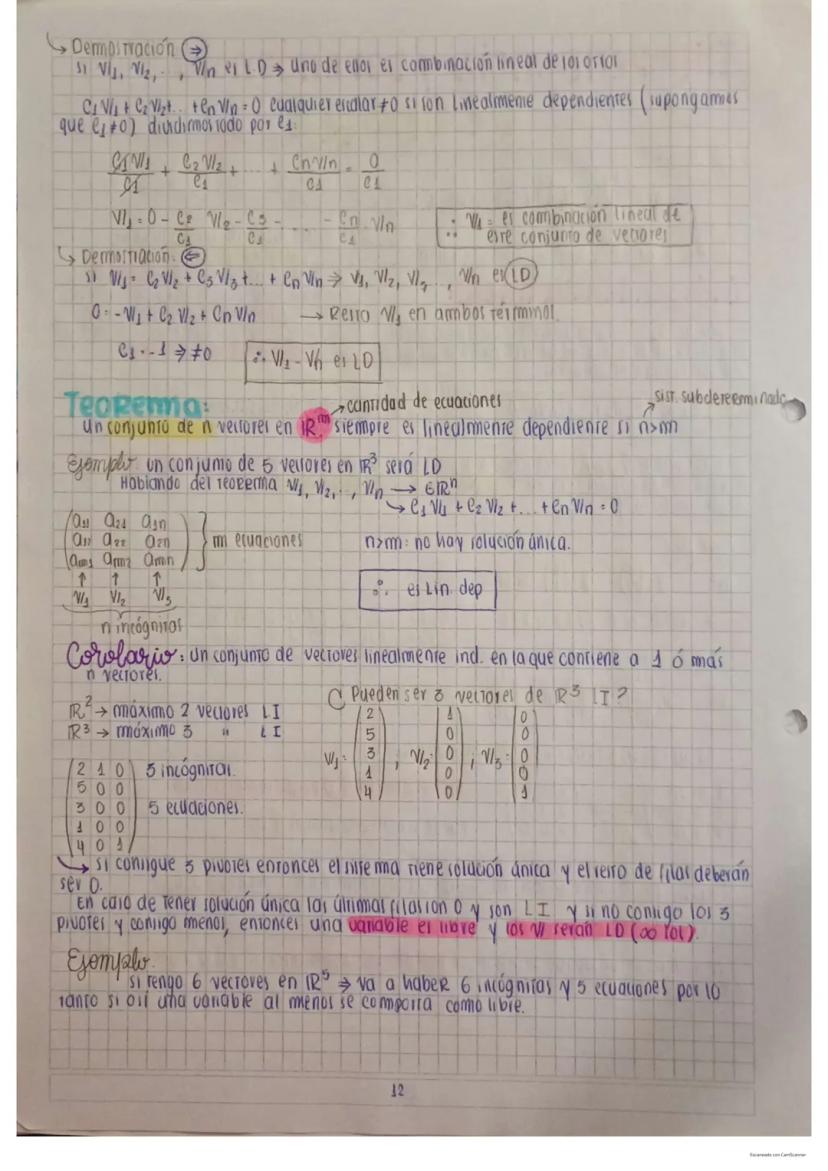 ↳ Demostración ⇒
si V1, V2, . , Vn es LD ⇒ uno de ellos es combinación lineal de los otros
C1V1 + C2V2+.. +CnVn = 0 cualquier escalar ≠0 si son linealmente dependientes (supongamos
que C1≠0) dividirmos todo por C1:
C1V1/C1 + C2V2/C1 + .... + CnVn/C1 = 0/C1
V1 = 0 - C2/C1 V2 - C3/C1 - .... - Cn/C1 Vn
∴ V1 = es combinación lineal de
este conjunto de vectores
↳ Demostración: ⇐
si V1 = C2V2 + C3V3 +... + CnVn ⇒ V1, V2, V3, .., Vn es LD
0 = -V1 + C2V2 + CnVn → Resto V1 en ambos términos.
C1 = -1 ⇒ ≠0
∴ V1 - Vn es LD
Teorema: →cantidad de ecuaciones sist. subdetereminado
un conjunto de n vectores en ℝᵐ siempre es linealmente dependiente si n>m
Ejemplo: un conjunto de 5 vectores en ℝ³ será LD
Hablando del teorema V1, V2, .., Vn → ∈ℝⁿ
↳ C1V1 + C2V2 +... + CnVn = 0
a11 a21 a1n
a12 a22 a2n
am1 am2 amn
m ecuaciones
n>m: no hay solución única.
↑ ↑ ↑
V1 V2 V3
∴ es Lin. dep
n incógnitas
Corolario: un conjunto de vectores linealmente ind. en la que contiene a 1 ó más
n vectores.
ℝ² → máximo 2 vectores LI
ℝ³ → máximo 3 " LI
¿ Pueden ser 3 vectores de ℝ⁵ LI?
V1 = (2 5 3 1 4) ; V2 = (1 0 0 0 0) ; V3 = (0 0 0 0 1)
2 1 0 3 incógnitas.
5 0 0
3 0 0 5 ecuaciones.
1 0 0
4 0 1
↳ si consigue 3 pivotes entonces el sistema tiene solución única y el resto de filas deberán
ser 0.
En caso de tener solución única las últimas filas son 0 y son LI y si no consigo los 3
pivotes y consigo menos, entonces una variable es libre y los V serán LD (∞ sol).
Ejemplo.
si tengo 6 vectores en ℝ⁵ ⇒ va a haber 6 incógnitas y 5 ecuaciones por lo
tanto si o si una variable al menos se comporta como libre.
12
Escaneado con CamScanner